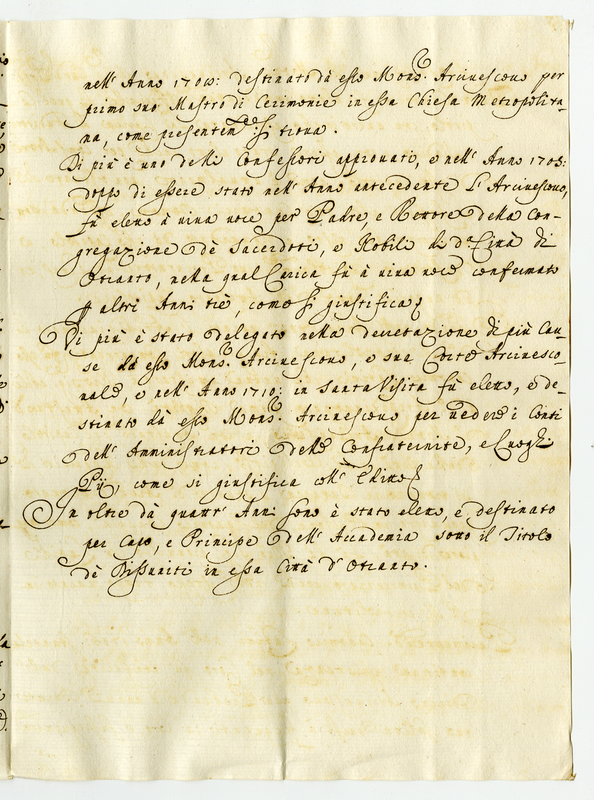 nell' Anno 170 : destinato dà esso Mons.r Arcivescovo per
primo suo Mastro di Cerimonie in essa Chiesa Metropolita-
na, come presentem.te si trova.
Di più è uno delli Confessori approvati, e nell' Anno 1703:
doppo di essere stato nell' Anno antecedente L' Arcivescovo,
fù eletto à viva voce per Padre, e Rettore della Con-
gregazione dè Sacerdoti, e Nobili di d.a Città di
Otranto, nella qual Carica fù à viva voce confirmato
p altri Anni trè, come si giustifica
Di più è stato delegato nella decretazione di più Cau-
se dà esso Mons.r Arcivescovo, e sua Corte Arcivesco-
vale, e nell' Anno 1710: in Santa Visita fù eletto, e de-
stinato dà esso Mons.r Arcivescovo per vedere i Conti
dell' Amministratori delle Confraternite, e Luoghi
Pij, come si giustifica coll'
In oltre dà quattr' Anni sono è stato eletto, e destinato
per Capo, e Principe dell' Accademia sotto il Titolo
dè Dissuniti in essa Città d' Otranto.